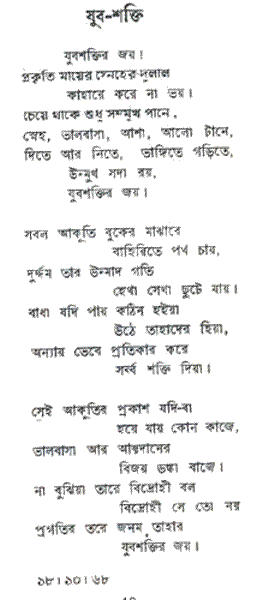 যুব-শক্তি
যুবশক্তির জয়।
প্রকৃতি মায়ের স্নেহের দুলাল
কাহারে করে না ভয়।
চেয়ে থাকে শুধু সম্মুখ পানে,
স্নেহ, ভালবাসা, আশা, আলো টানে,
দিতে আর নিতে, ভাঙ্গিতে গড়িতে,
উন্মুখ সদা রয়,
যুবশক্তির জয়।
সবল আকুতি বুকের মাঝারে
বাহিরিতে পথ চায়,
দুর্দ্দম তার উন্মাদ গতি
হেথা সেথা ছুটে যায়।
বাধা যদি পায় কঠিন হইয়া
উঠে তাহাদের হিয়া,
অন্যায় ভেবে প্রতিকার করে
সর্ব্ব শক্তি দিয়া।
সেই আকুতির প্রকাশ যদি-বা
হয়ে যায় কোন কাজে,
ভালবাসা আর আত্মদানের
বিজয় ডঙ্কা বাজে।
না বুঝিয়া তারে বিদ্রোহী বল
বিদ্রোহী সে তো নয়
প্রগতির তরে জনম তাহার
যুবশক্তির জয়।
১৮।১০।৬৮